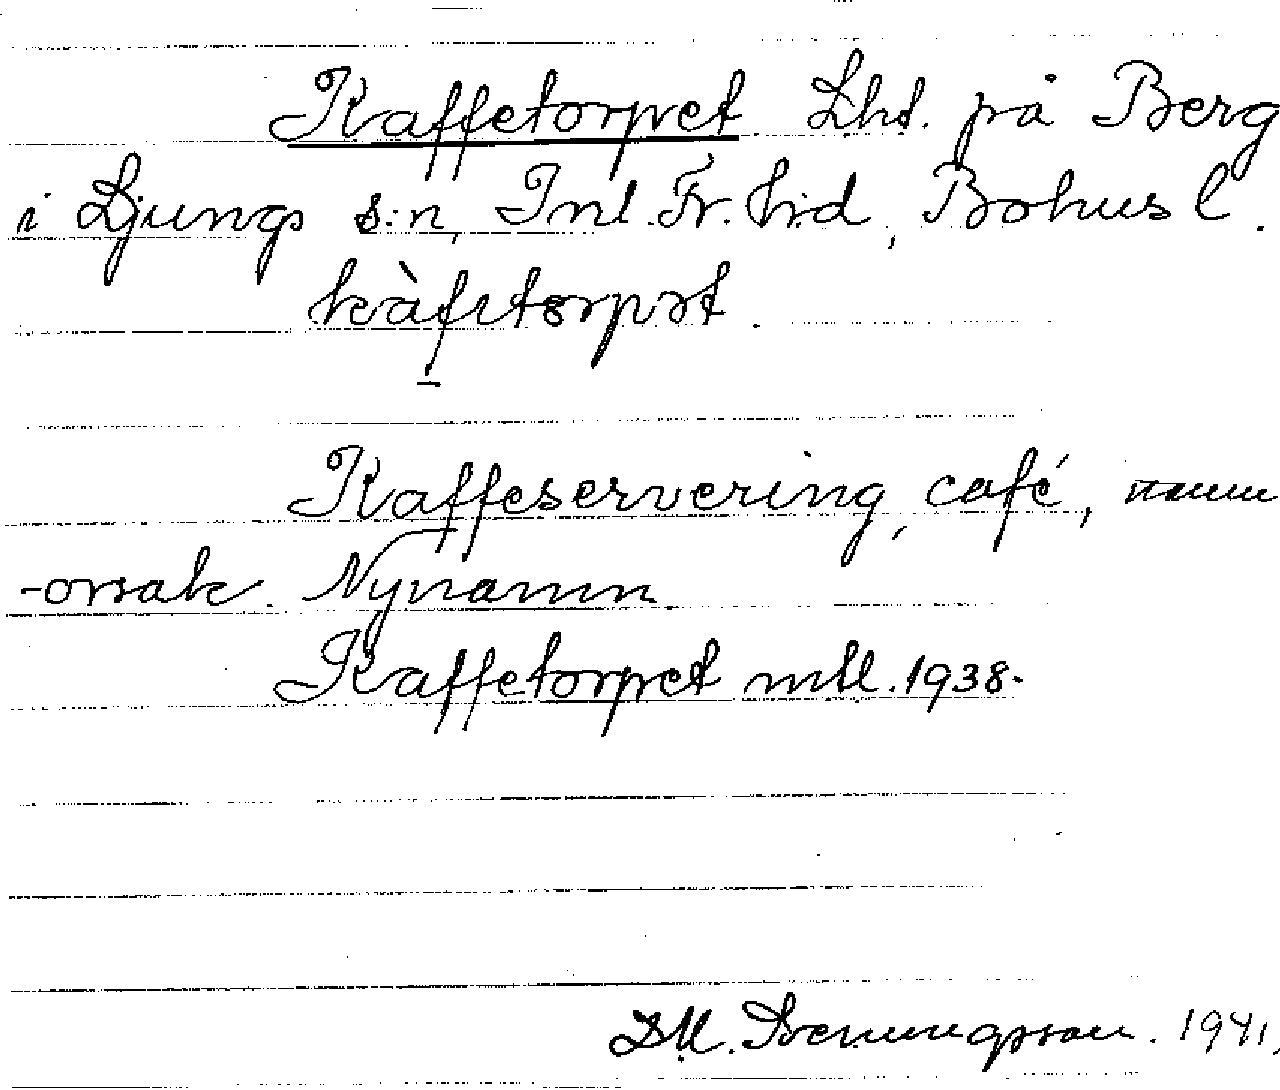 Kaffetorpet. Lht. på Berg
i Ljungs s:n, Inl. Fr. h:d, Bohusl.
kàfetorpət.
Kaffeservering, café, namn
-orsak. Nynamn
Kaffetorpet mtl. 1938.
Svenungsson. 1941.